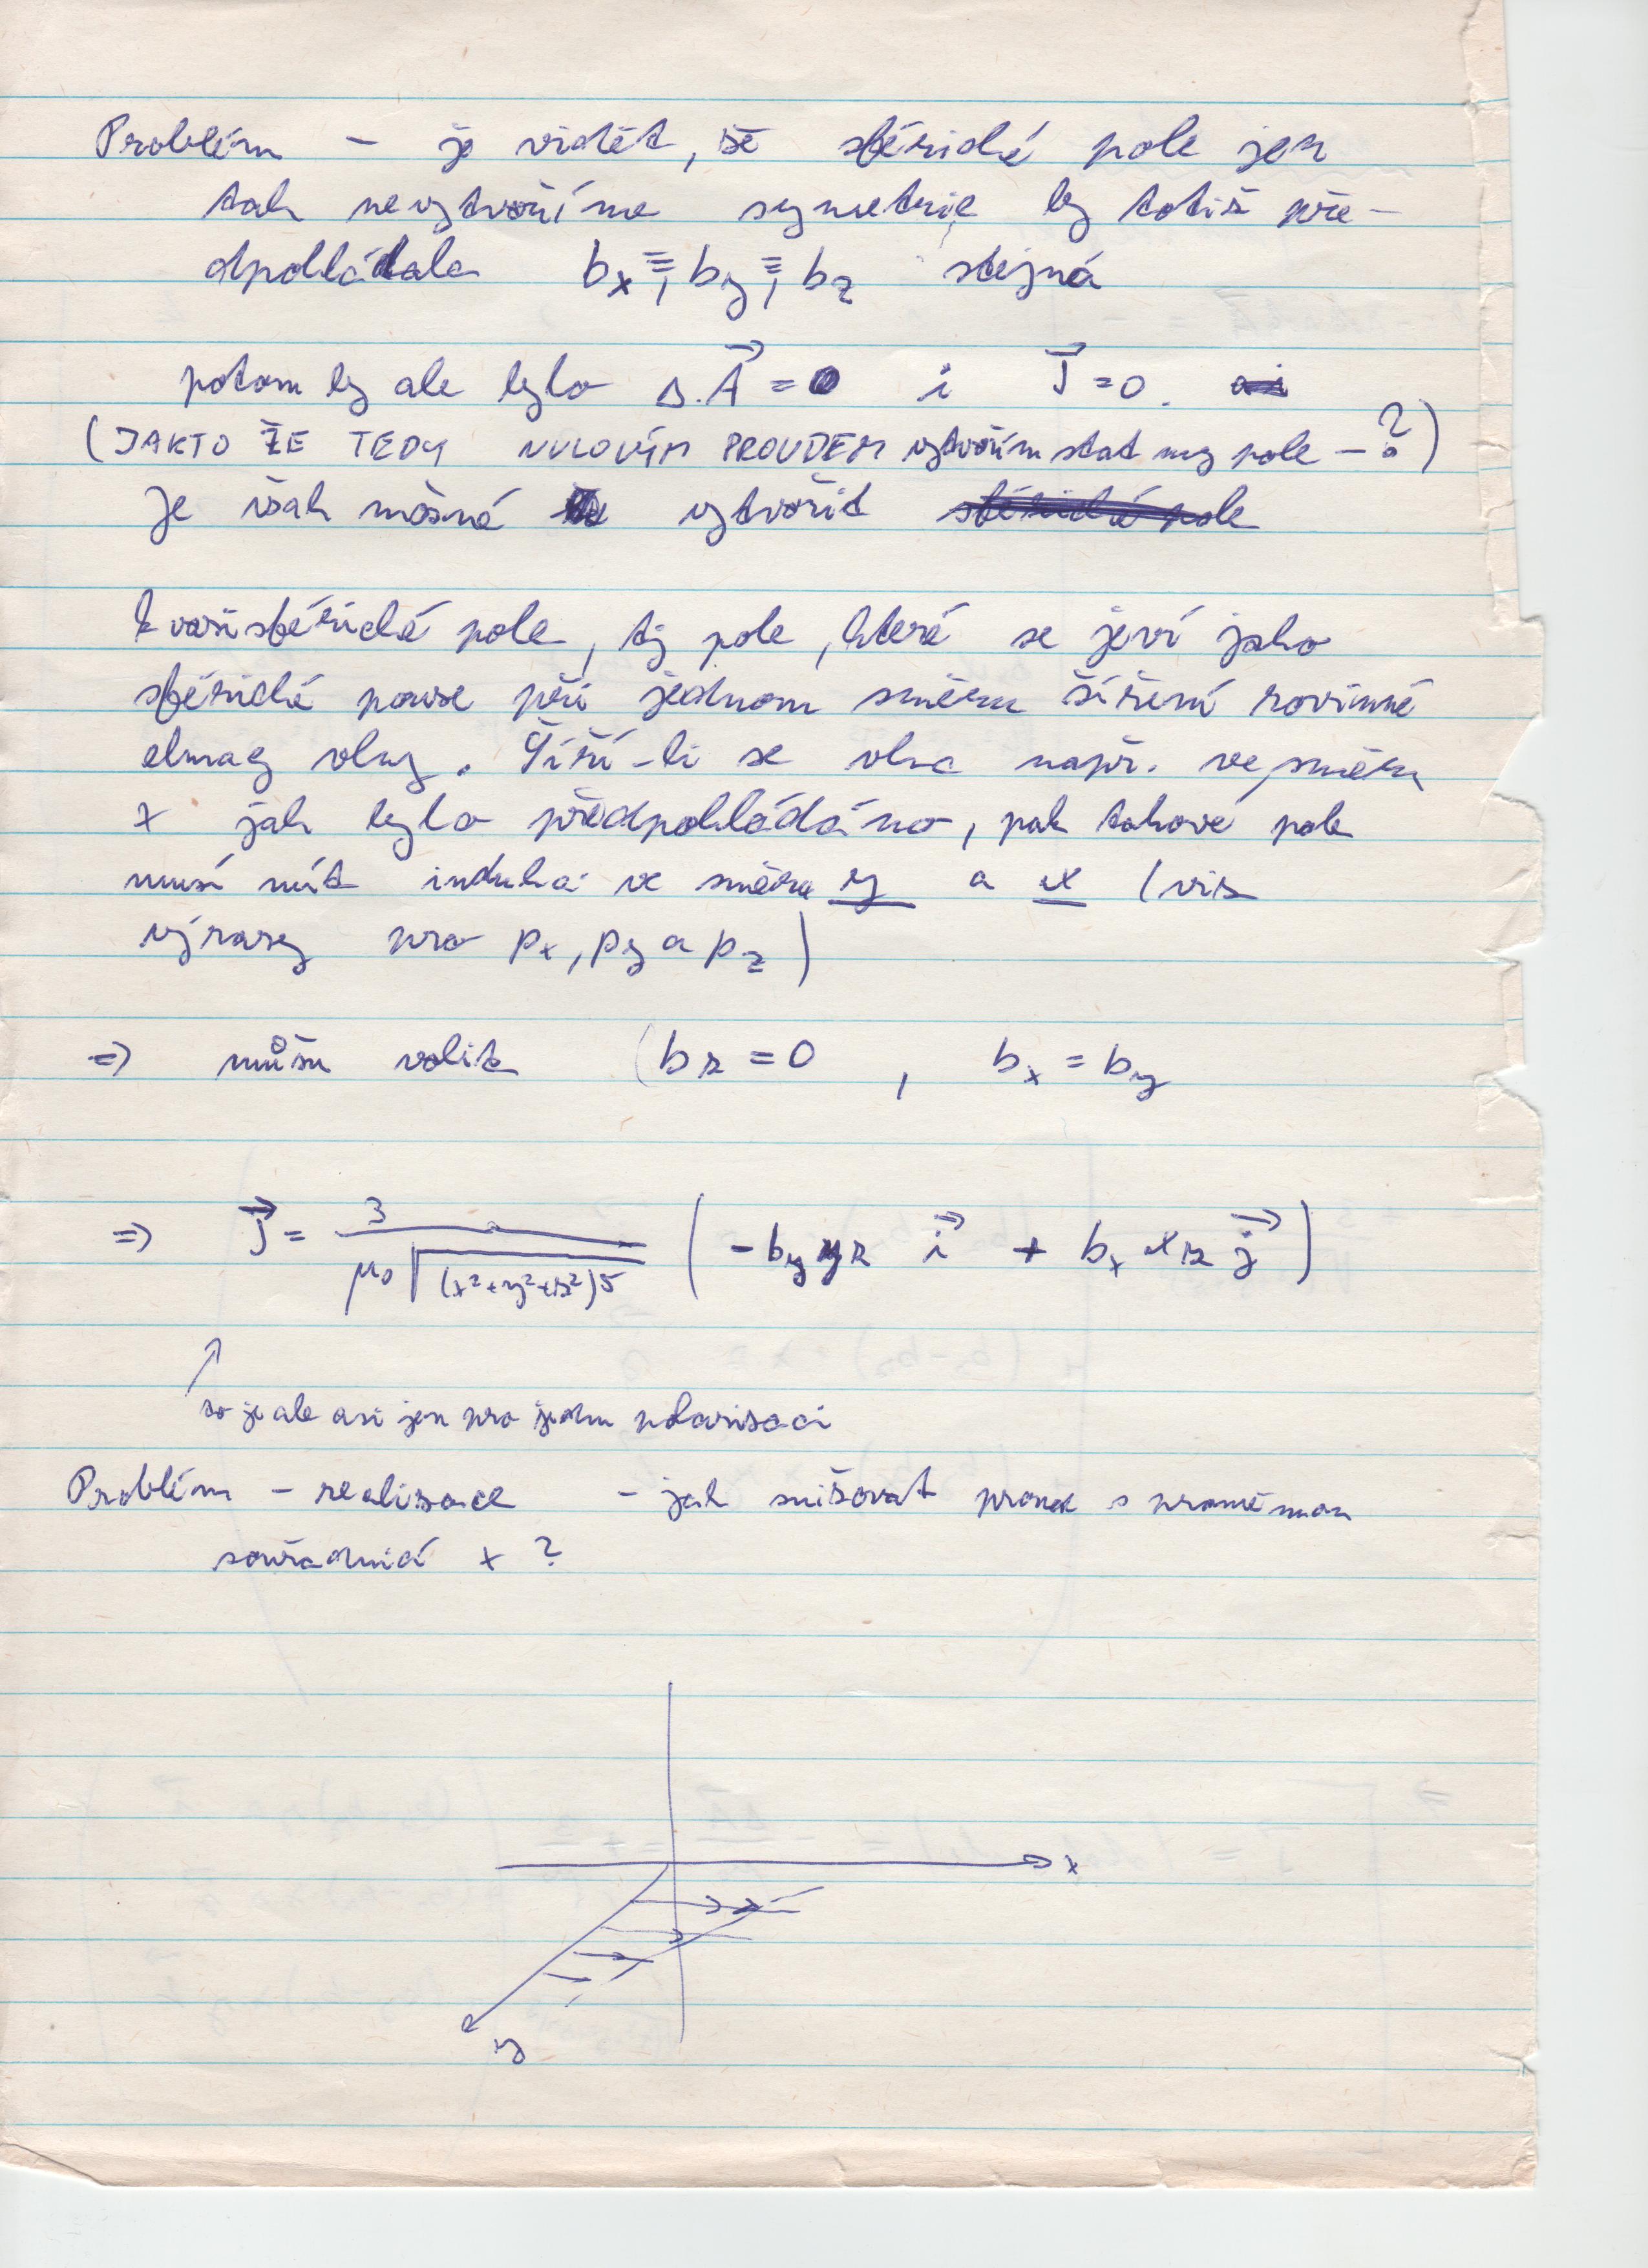 Problém – je vidět, že sférické pole jen
tak nevytvoříme symetrie by totiž pře-
dpokládala bₓ ≡, b_y ≡, b_z stejná
potom by ale bylo Δ.A⃗ = 0 i J⃗ = 0.
(JAKTO ŽE TEDY NULOVÝM PROUDEM vytvořím stat mg pole – ?)
je však možné vytvořit sférické pole
kvazisférické pole, tj pole, které se jeví jako
sférické pouze při jednom směru šíření rovinné
elmag vlny. Šíří-li se vlna např. ve směru
x jak bylo předpokládáno, pak takové pole
musí mít indukci ve směru y a x (viz
výrazy pro pₓ, p_y a p_z)
⇒ můžu volit (b_z = 0 , bₓ = b_y
⇒ J⃗ = 3 / μ₀ √(x²+y²+z²)⁵ ( – b_y yz i⃗ + bₓ xz j⃗ )
↑
to je ale asi jen pro jednu polarizaci
Problém – realizace – jak snižovat proud s proměnnou
souřadnicí x ?
x
y